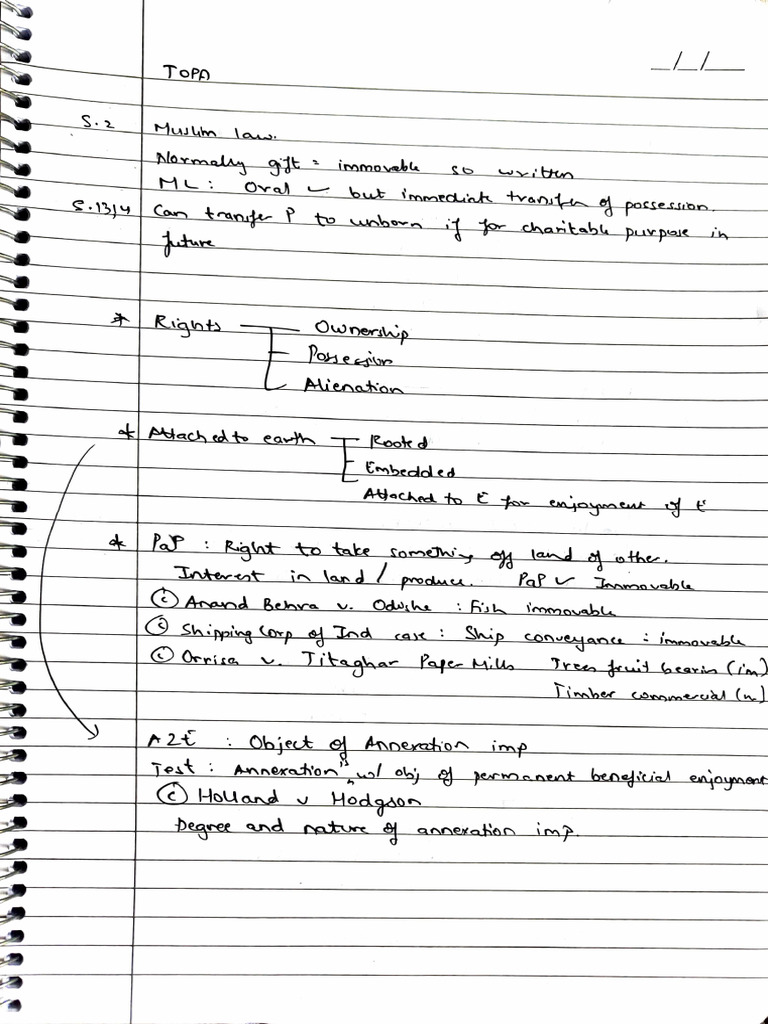 _/_/__
TOPA
S.2 Muslim law.
Normally gift = immovable so written
ML : Oral ✓ but immediate transfer of possession.
S.13/4 Can transfer P to unborn if for charitable purpose in
future
* Rights — Ownership
Possession
Alienation
* Attached to earth — Rooted
Embedded
Attached to E for enjoyment of E
* PaP : Right to take something off land of other.
Interest in land / produce. PaP ✓ Immovable
(C) Anand Behra v. Odishe : Fish immovable
(C) Shipping Corp of Ind case : Ship conveyance = immovable
(C) Orrisa v. Titaghar Paper Mills Trees fruit bearin (im)
Timber commercial (m)
A2E : Object of Annexation imp
Test : Annexation is w/ obj of permanent beneficial enjoyment
(C) Holland v Hodgson
Degree and nature of annexation imp.